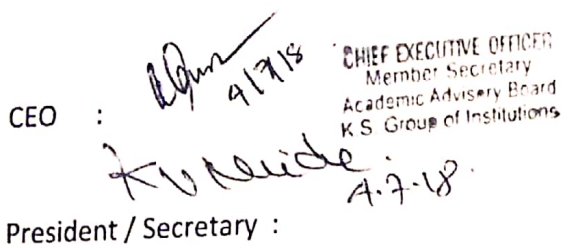 4/7/18
CHIEF EXECUTIVE OFFICER
Member Secretary
Academic Advisory Board
K.S. Group of Institutions
CEO :
4.7.18.
President / Secretary :